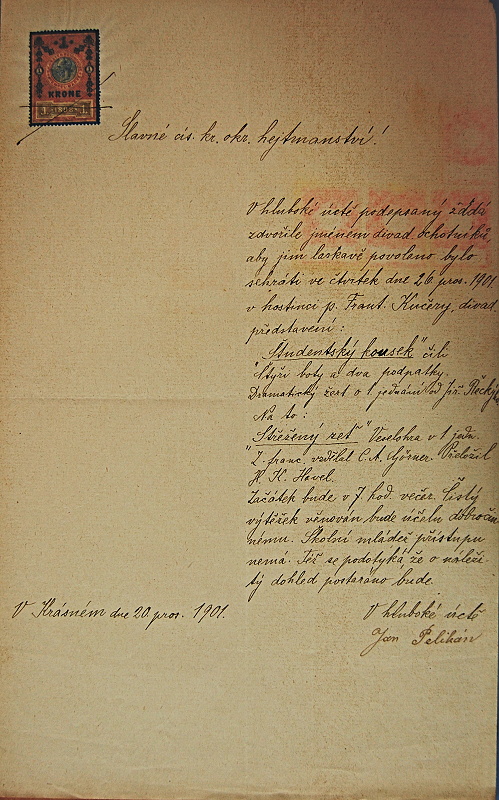 1
KRONE
1 1898 1
Slavné cís. kr. okr. hejtmanství!
V hluboké úctě podepsaný žádá
zdvořile jménem divad. ochotníků,
aby jim laskavě povoleno bylo
sehráti ve čtvrtek dne 26. pros. 1901
v hostinci p. Frant. Kučery, divad.
představení:
„Študentský kousek" čili
Čtyři boty a dva podpatky.
Dramatický žert o 1 jednání od
Na to:
„Střežený zeť" Veselohra v 1 jedn.
Z franc. vzdělal C. A. Görner. Přeložil
H. K. Havel.
Začátek bude v 7 hod. večer. Čistý
výtěžek věnován bude účelu dobročin
nému. Školní mládež přístupu
nemá. Též se podotýká, že o náleži
tý dohled postaráno bude.
V Krásném dne 20. pros. 1901.
V hluboké úctě
Jan Pelihán